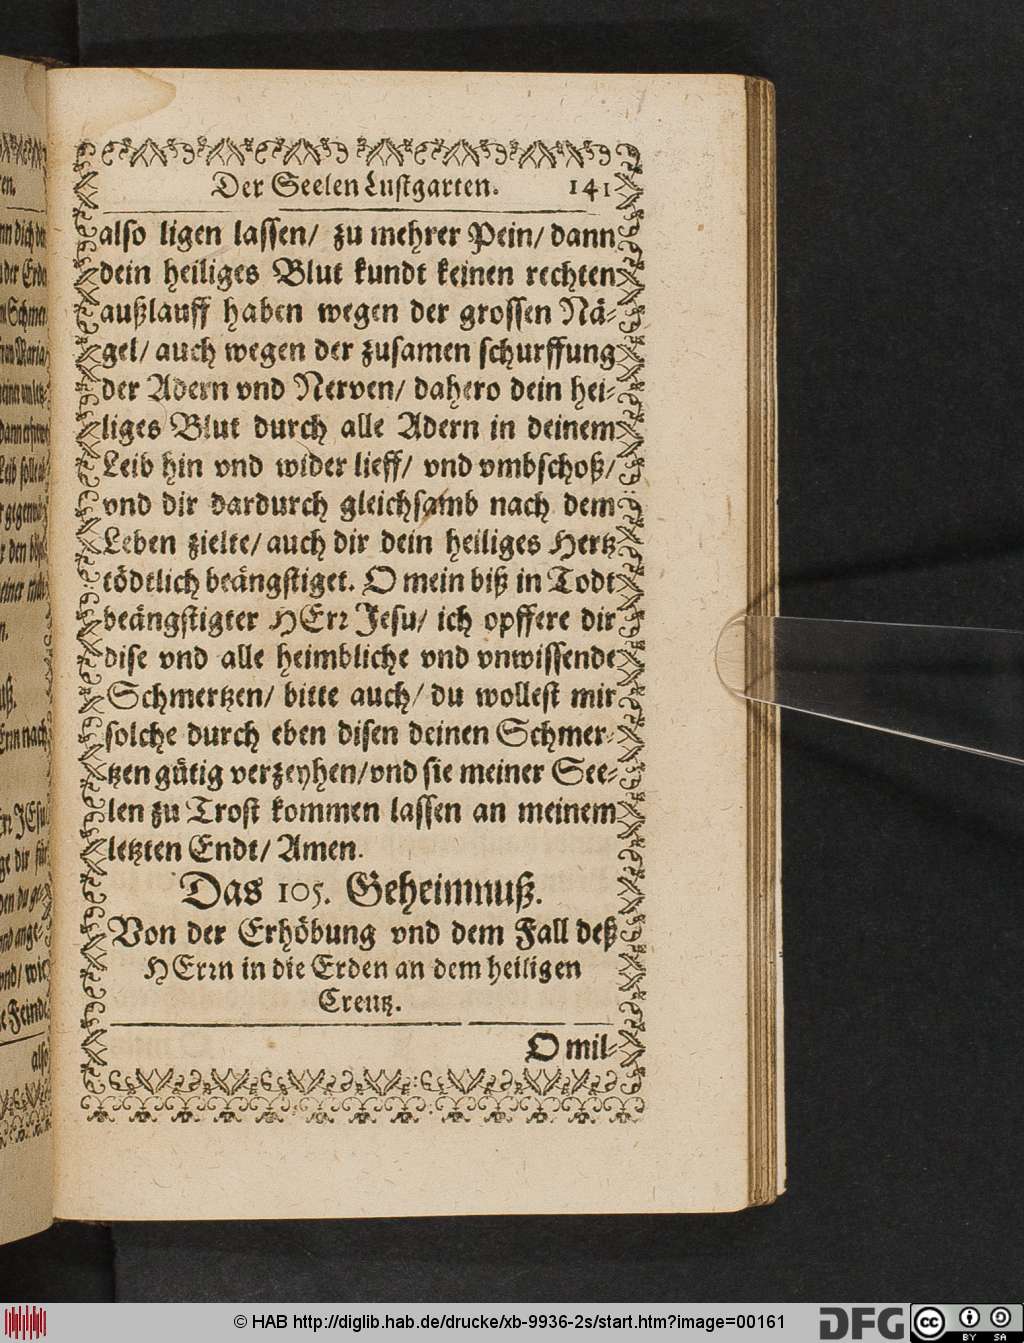 Der Seelen Lustgarten. 141
also ligen lassen/ zu mehrer Pein/ dann
dein heiliges Blut kundt keinen rechten
außlauff haben wegen der grossen Nä-
gel/ auch wegen der zusamen schurffung
der Adern vnd Nerven/ dahero dein hei-
liges Blut durch alle Adern in deinem
Leib hin vnd wider lieff/ vnd vmbschoß/
vnd dir dardurch gleichsamb nach dem
Leben zielte/ auch dir dein heiliges Hertz
tödtlich beängstiget. O mein biß in Todt
beängstigter HErꝛ Jesu/ ich opffere dir
dise vnd alle heimbliche vnd vnwissende
Schmertzen/ bitte auch/ du wollest mir
solche durch eben disen deinen Schmer-
tzen gütig verzeyhen/ vnd sie meiner See-
len zu Trost kommen lassen an meinem
letzten Endt/ Amen.
Das 105. Geheimnuß.
Von der Erhöbung vnd dem Fall deß
HErꝛn in die Erden an dem heiligen
Creutz.
O mil-
© HAB http://diglib.hab.de/drucke/xb-9936-2s/start.htm?image=00161
DFG
cc
BY SA